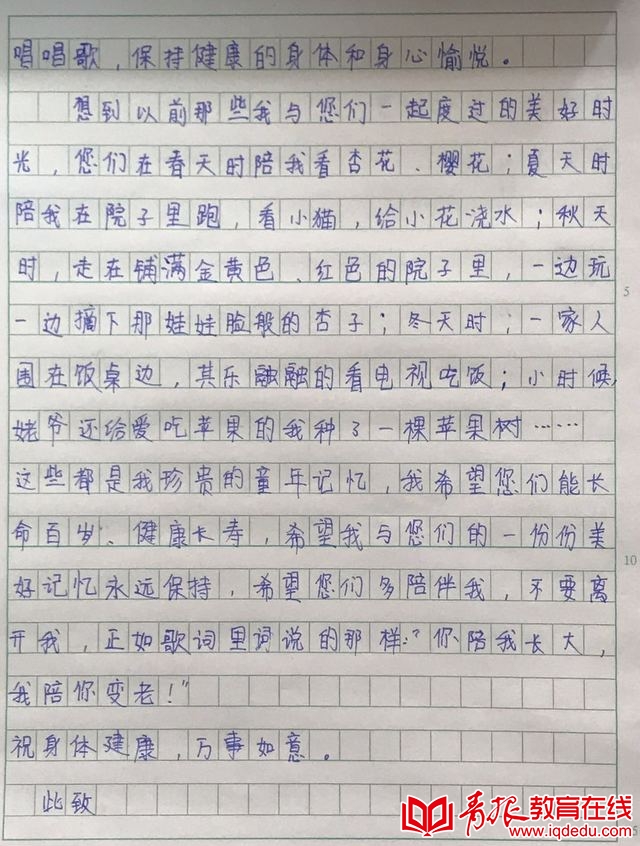 唱唱歌，保持健康的身体和身心愉悦。
想到以前那些我与您们一起度过的美好时
光，您们在春天时陪我看杏花、樱花；夏天时
陪我在院子里跑，看小猫，给小花浇水；秋天
时，走在铺满金黄色、红色的院子里，一边玩
一边摘下那娃娃脸般的杏子；冬天时；一家人
围在饭桌边，其乐融融的看电视吃饭；小时候，
姥爷还给爱吃苹果的我种了一棵苹果树……
这些都是我珍贵的童年记忆，我希望您们能长
命百岁、健康长寿，希望我与您们的一份份美
好记忆永远保持，希望您们多陪伴我，不要离
开我，正如歌词里词说的那样：“你陪我长大，
我陪你变老！”
祝身体健康，万事如意。
此致
5
10
青报教育在线
www.iqdedu.com